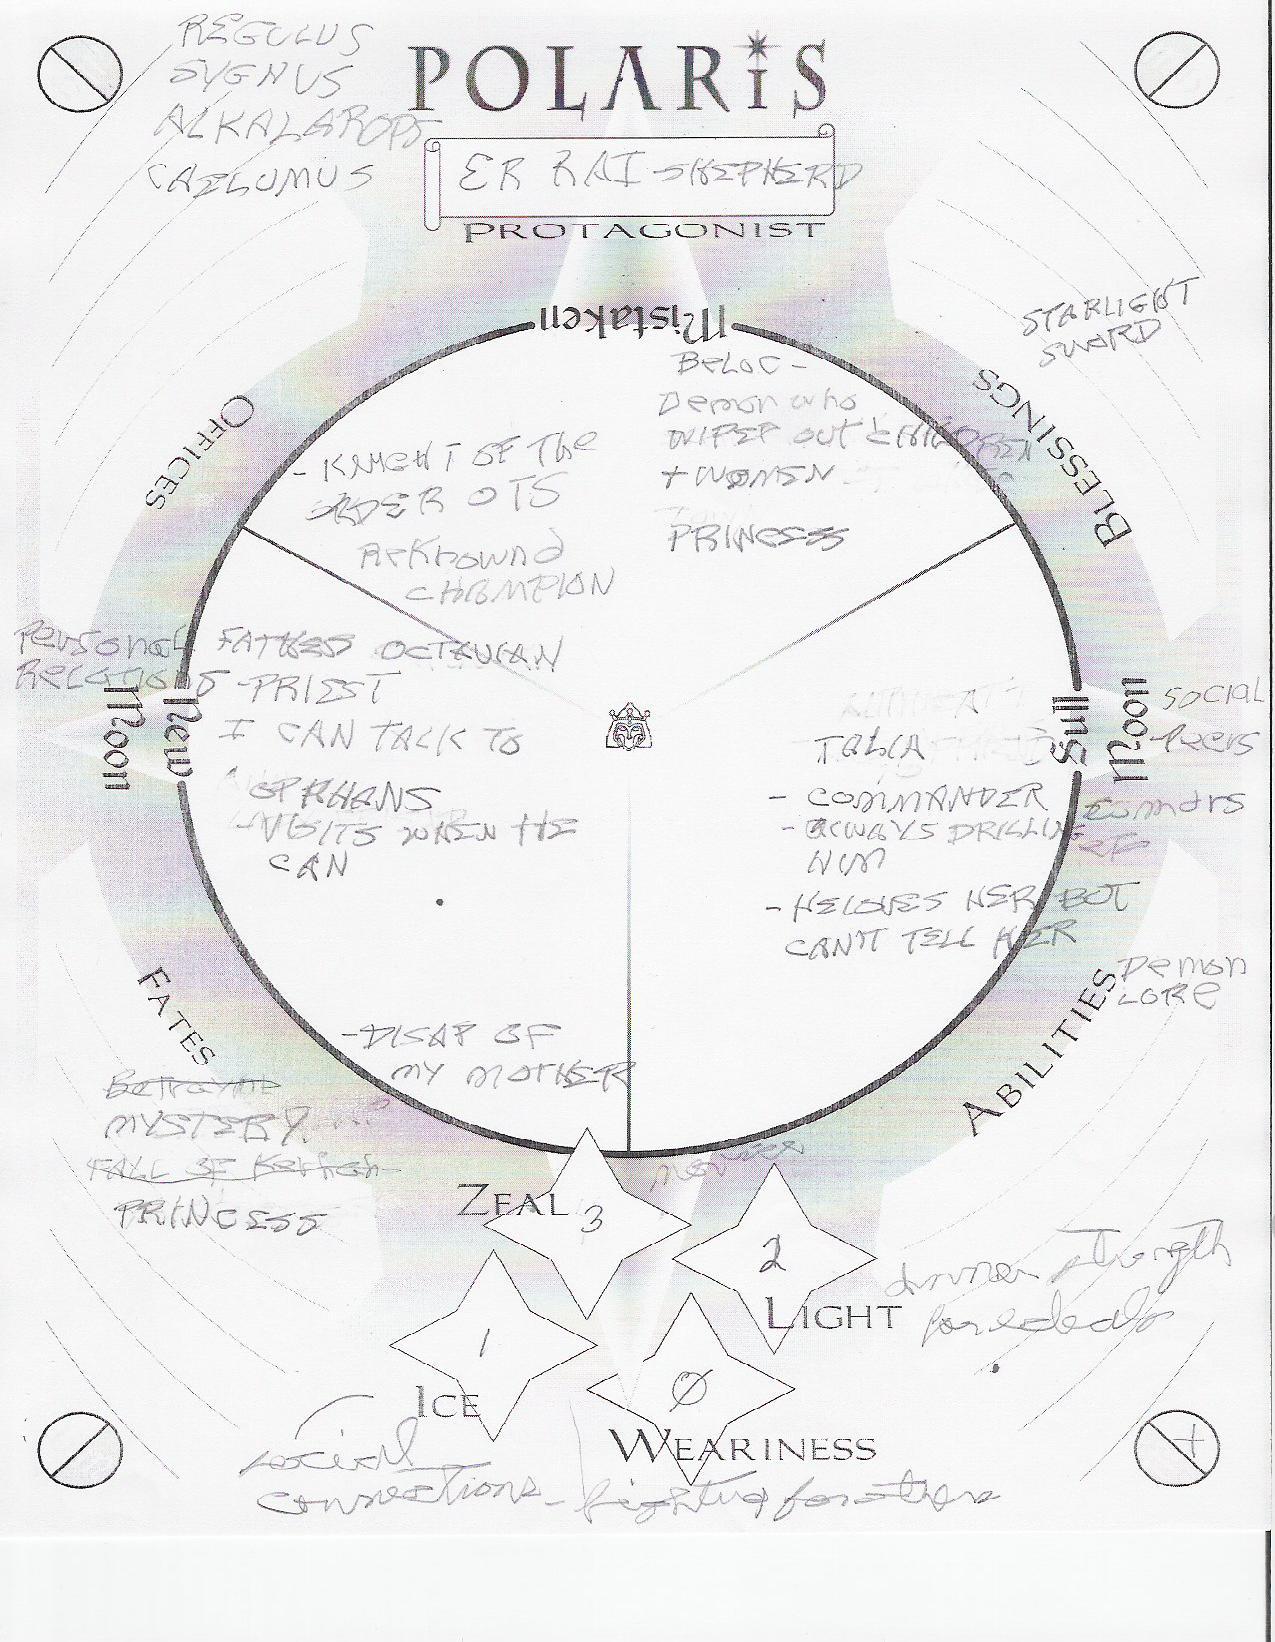 REGULUS
SYGNUS
ALKALAROPS
CAELUMUS
POLARIS
ER RAI - SHEPHERD
PROTAGONIST
Mistaken
STARLIGHT
SWORD
BLESSINGS
OFFICES
BELOC -
Demon who
WIPED OUT CHILDREN
+ WOMEN
PRINCESS
- KNIGHT OF THE
ORDER OTS
CHAMPION
Personal
RELATIONS
New
Moon
FATHER OCTAVIAN
- PRIEST
I CAN TALK TO
ORPHANS
- VISITS WHEN HE
CAN
- DISAP OF
MY MOTHER
Full
Moon
SOCIAL
Peers
TALIA
- COMMANDER
- ALWAYS DRILLING
HIM
- HE LOVES HER BUT
CAN'T TELL HER
ABILITIES
Demon
LORE
FATES
MYSTERY
FALL OF
PRINCESS
ZEAL 3
2
LIGHT
inner strength
for ideals
1
ICE
0
WEARINESS
social
connections - fighting for others